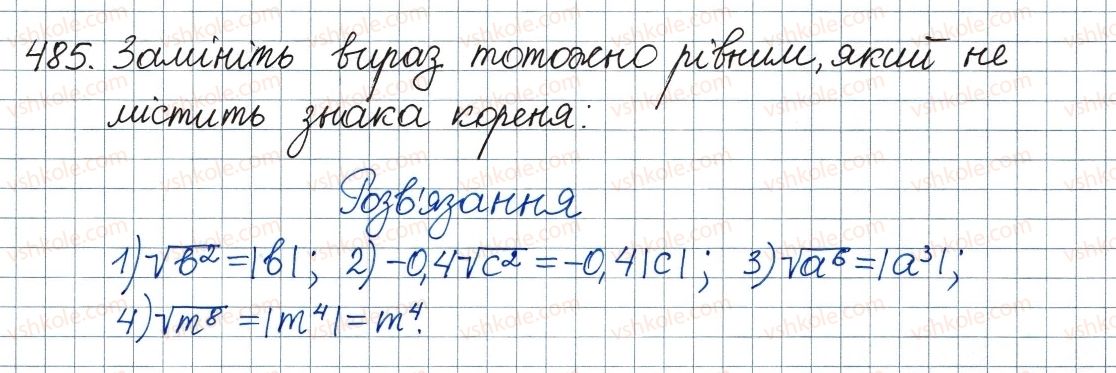 485. Замініть вираз тотожно рівним, який не
містить знака кореня:
Розв'язання
1) √b² = |b|; 2) -0,4√c² = -0,4|c|; 3) √a⁶ = |a³|;
4) √m⁸ = |m⁴| = m⁴.